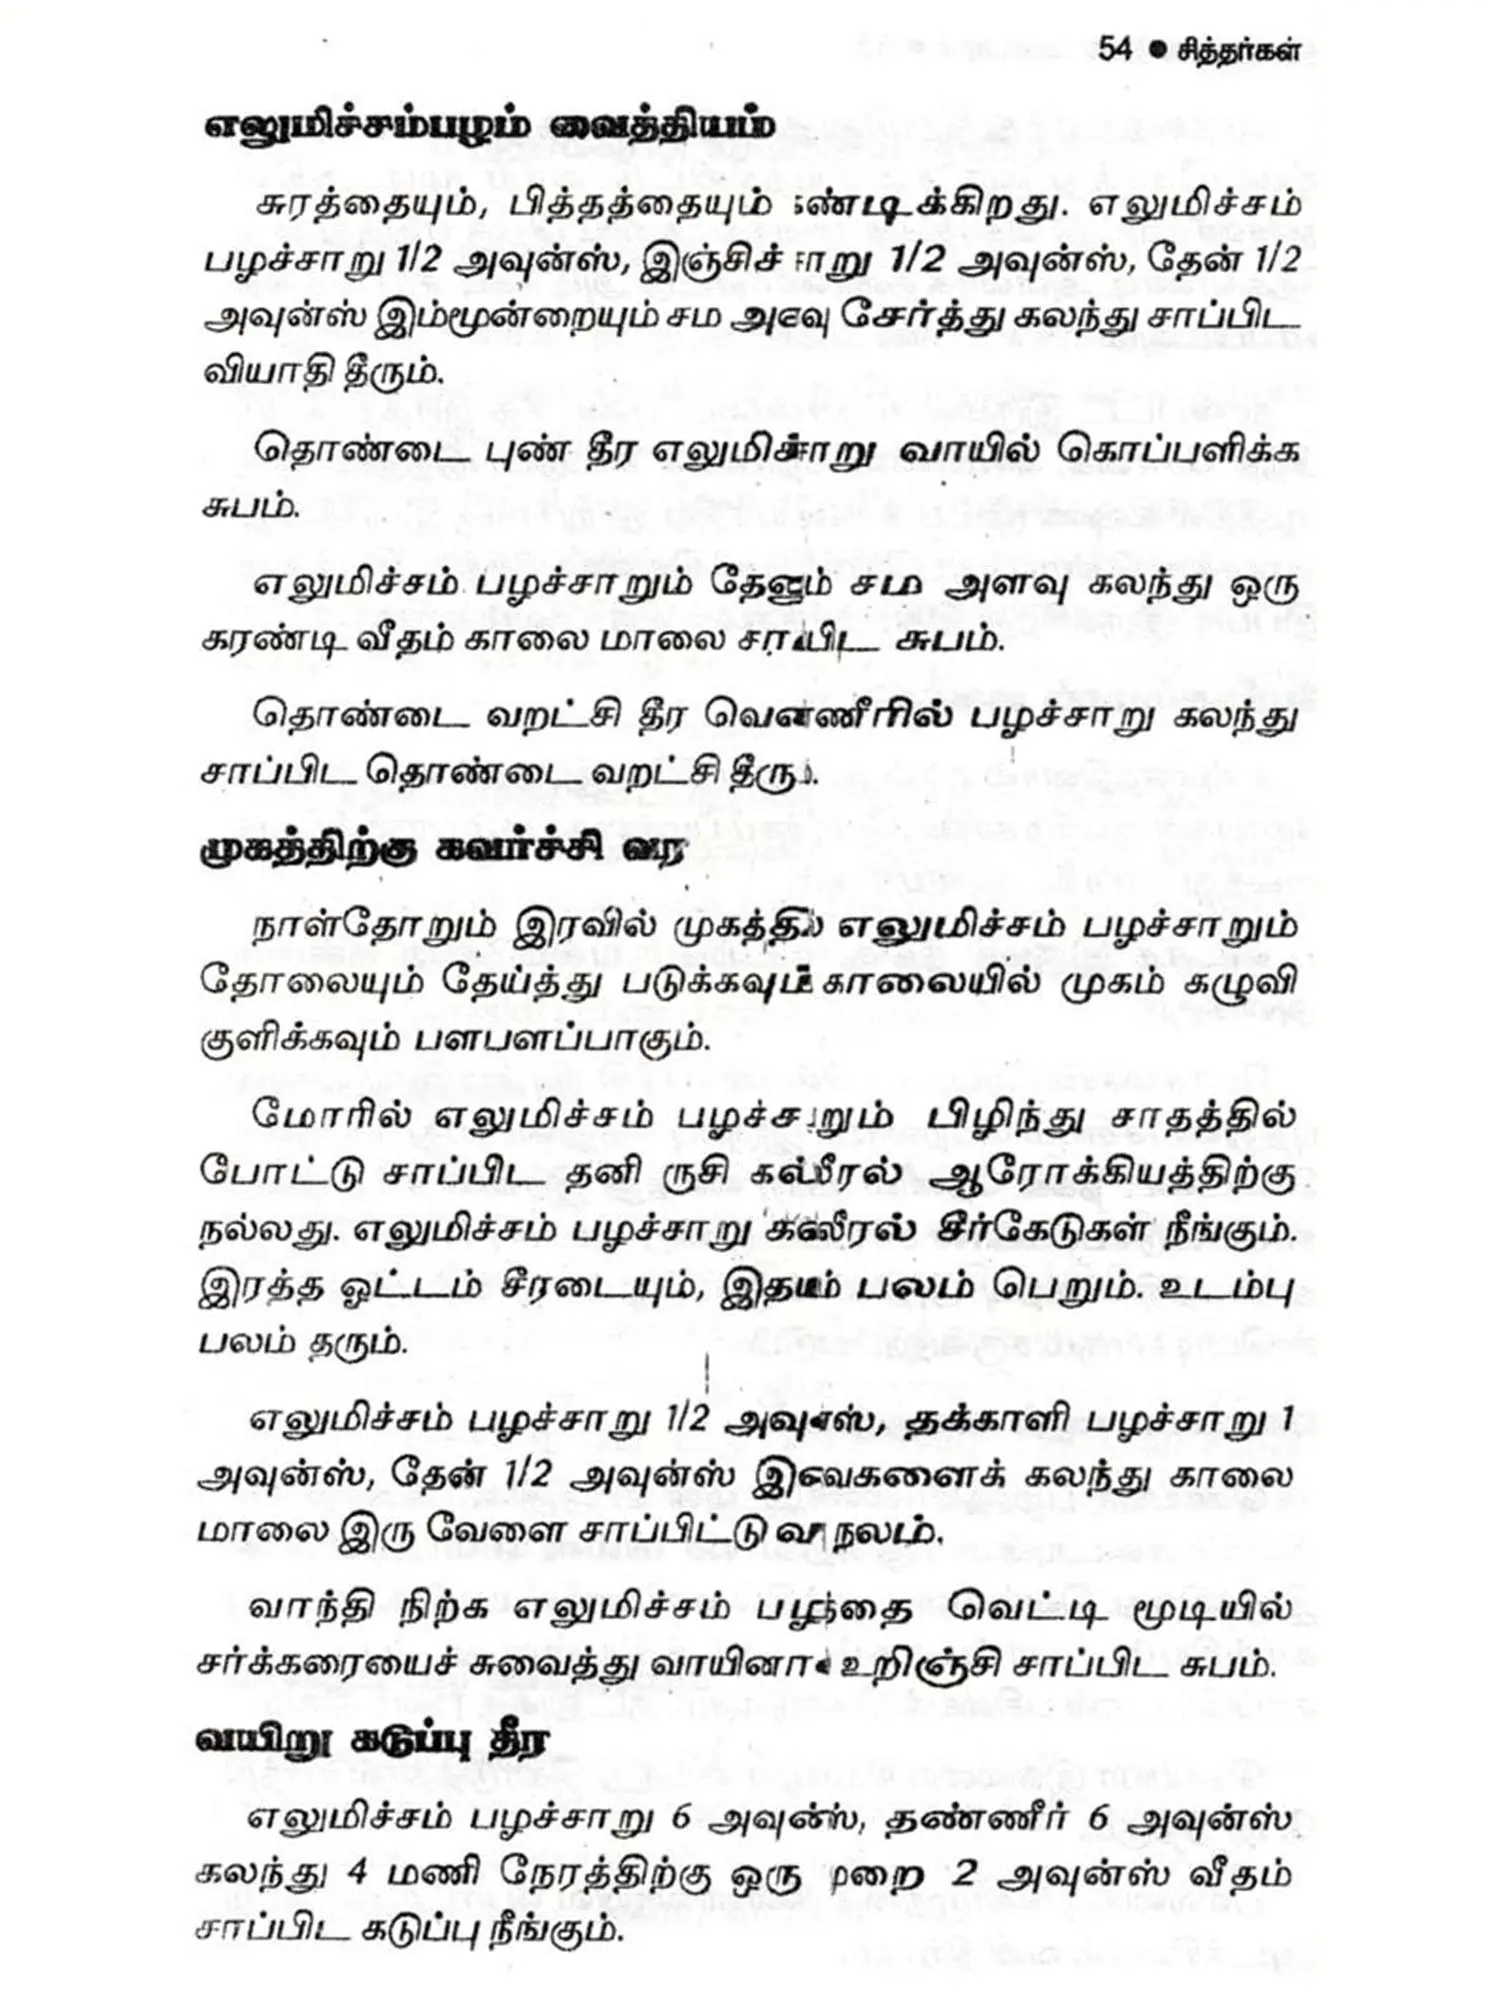 54 ● சித்தர்கள்
எலுமிச்சம்பழம் வைத்தியம்
சுரத்தையும், பித்தத்தையும் கண்டிக்கிறது. எலுமிச்சம்
பழச்சாறு 1/2 அவுன்ஸ், இஞ்சிச் சாறு 1/2 அவுன்ஸ், தேன் 1/2
அவுன்ஸ் இம்மூன்றையும் சம அளவு சேர்த்து கலந்து சாப்பிட
வியாதி தீரும்.
தொண்டை புண் தீர எலுமிச்சாறு வாயில் கொப்பளிக்க
சுபம்.
எலுமிச்சம் பழச்சாறும் தேனும் சம அளவு கலந்து ஒரு
கரண்டி வீதம் காலை மாலை சாப்பிட சுபம்.
தொண்டை வறட்சி தீர வெண்ணீரில் பழச்சாறு கலந்து
சாப்பிட தொண்டை வறட்சி தீரும்.
முகத்திற்கு கவர்ச்சி வர
நாள்தோறும் இரவில் முகத்தில் எலுமிச்சம் பழச்சாறும்
தோலையும் தேய்த்து படுக்கவும் காலையில் முகம் கழுவி
குளிக்கவும் பளபளப்பாகும்.
மோரில் எலுமிச்சம் பழச்சாறும் பிழிந்து சாதத்தில்
போட்டு சாப்பிட தனி ருசி கல்லீரல் ஆரோக்கியத்திற்கு
நல்லது. எலுமிச்சம் பழச்சாறு கல்லீரல் சீர்கேடுகள் நீங்கும்.
இரத்த ஓட்டம் சீரடையும், இதயம் பலம் பெறும். உடம்பு
பலம் தரும்.
எலுமிச்சம் பழச்சாறு 1/2 அவுன்ஸ், தக்காளி பழச்சாறு 1
அவுன்ஸ், தேன் 1/2 அவுன்ஸ் இவைகளைக் கலந்து காலை
மாலை இரு வேளை சாப்பிட்டு வர நலம்.
வாந்தி நிற்க எலுமிச்சம் பழத்தை வெட்டி மூடியில்
சர்க்கரையைச் சுவைத்து வாயினால் உறிஞ்சி சாப்பிட சுபம்.
வயிறு கடுப்பு தீர
எலுமிச்சம் பழச்சாறு 6 அவுன்ஸ், தண்ணீர் 6 அவுன்ஸ்
கலந்து 4 மணி நேரத்திற்கு ஒரு முறை 2 அவுன்ஸ் வீதம்
சாப்பிட கடுப்பு நீங்கும்.